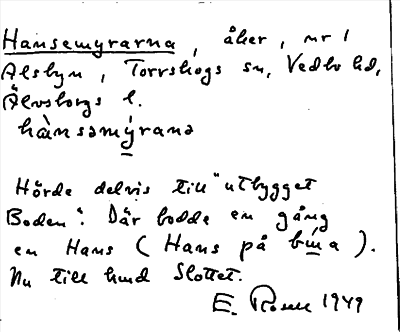 Hansemyrarna, åker, nr 1
Alsbyn, Torrskogs sn, Vedbo hd,
Älvsborgs l.
hànsəmýrana
Hörde delvis till "utbygget
Boden". Där bodde en gång
en Hans (Hans på bua).
Nu till hmd Slottet.
E. Rosell 1949